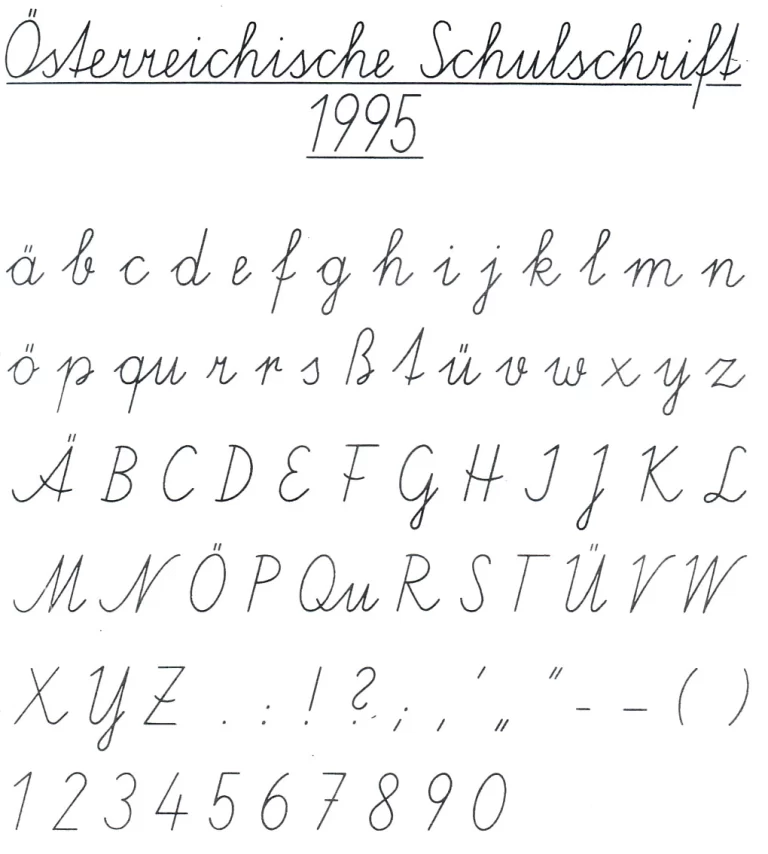 Österreichische Schulschrift
1995
ä b c d e f g h i j k l m n
ö p qu r r s ß t ü v w x y z
Ä B C D E F G H I J K L
M N Ö P Qu R S T Ü V W
X Y Z . : ! ? ; , ' „ “ - – ( )
1 2 3 4 5 6 7 8 9 0